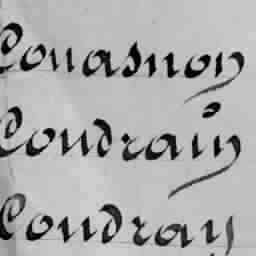 Couasnon
Coudrain
Coudray